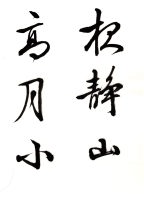 静山
高月小